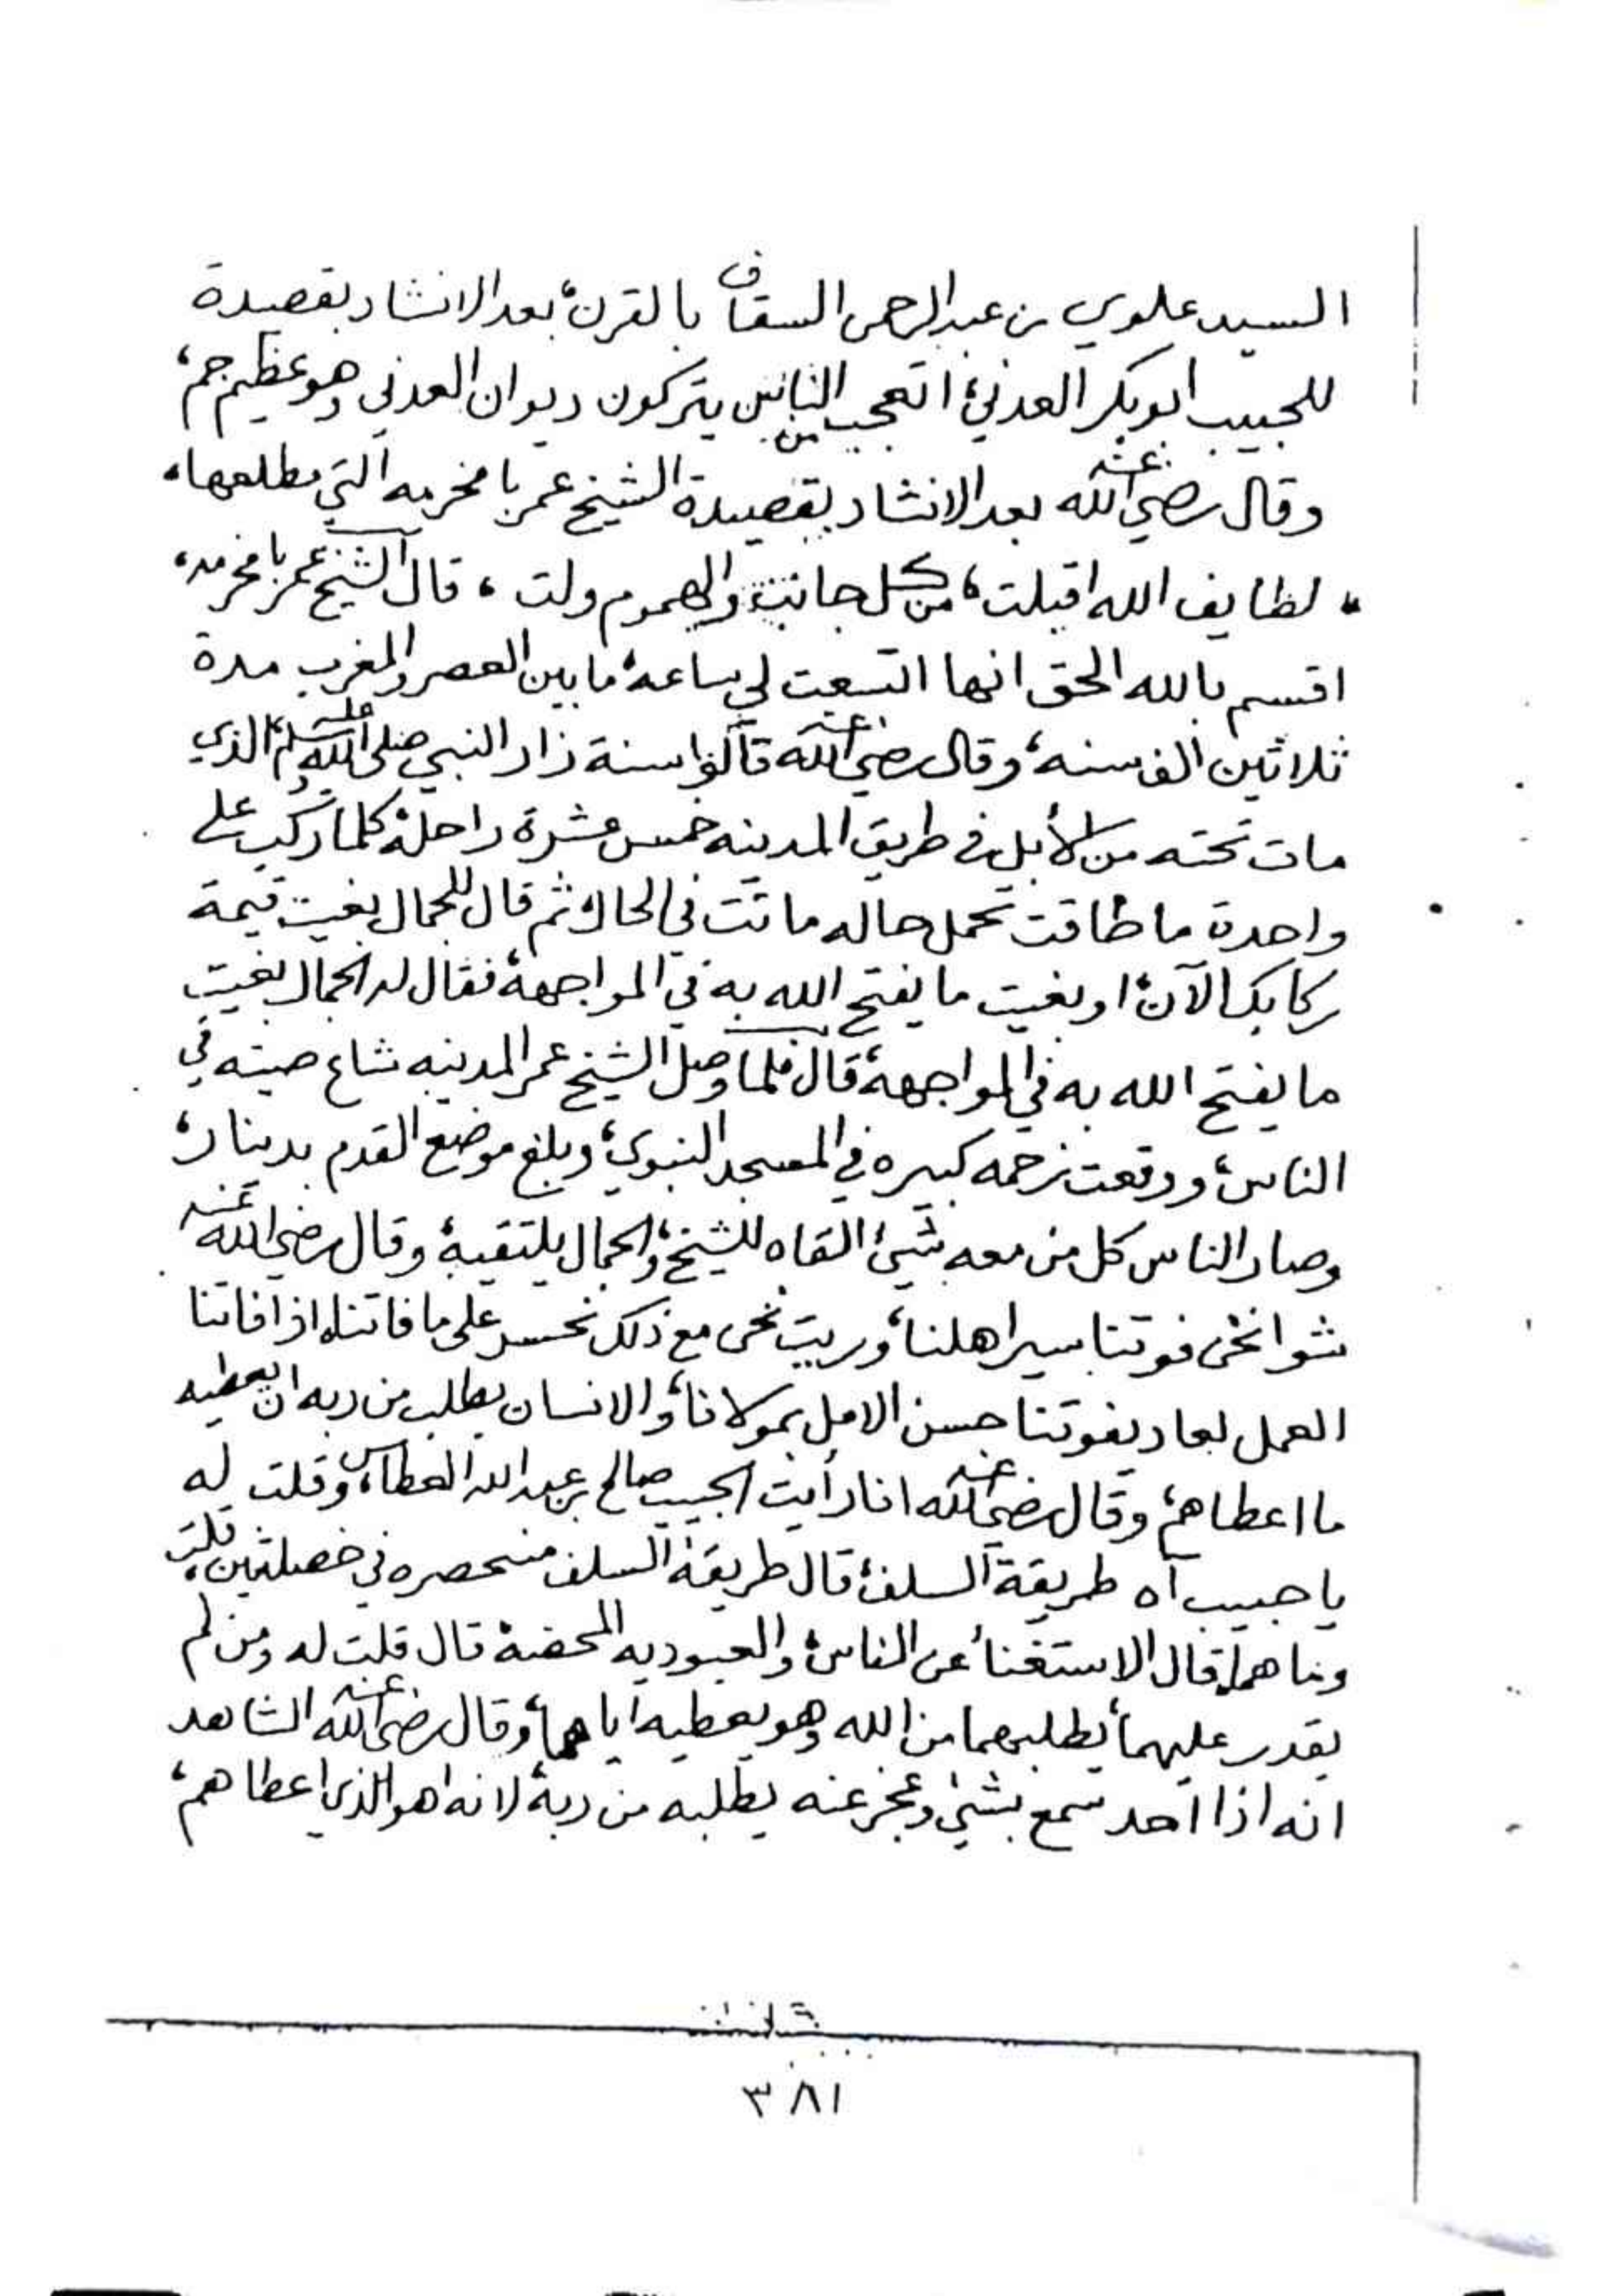 السيد علوي بن عبدالرحمن السقاف بالقرن، بعد الانشاد بقصيدة
للحبيب ابوبكر العدني، اتعجب من الناس يتركون ديوان العدني وهو عظيم جم،
وقال رضي الله عنه بعد الانشاد بقصيدة الشيخ عمر بامخرمه التي مطلعها،
، لطايف الله اقبلت، من كل جانب والهموم ولت، قال الشيخ عمر بامخرمه،
اقسم بالله الحق انها اتسعت لي ساعة ما بين العصر والمغرب مدة
ثلاثين الف سنه، وقال رضي الله عنه قالوا سنة زار النبي صلى الله عليه وسلم الذي
مات تحته من الأبل في طريق المدينه خمس عشرة راحلة كلما ركب على
واحدة ما طاقت تحمل حاله ماتت في الحال، ثم قال للجمال بغيت قيمة
ركابك الآن، او بغيت ما يفتح الله به في المواجهة، فقال له الجمال بغيت
ما يفتح الله به في المواجهة، قال فلما وصل الشيخ عمر المدينه شاع صيته في
الناس، ووقعت زحمه كبيره في المسجد النبوي، وبلغ موضع القدم بدينار،
وصار الناس كل من معه شيء القاه للشيخ، والجمال يلتقيه، وقال رضي الله عنه
شوا نحن فوتنا سير اهلنا، وريت نحن مع ذلك نحسد على ما فاتنا، اذا فاتنا
العمل لعاد يفوتنا حسن الامل بمولانا، والانسان يطلب من ربه ان يعطيه
ما اعطاهم، وقال رضي الله عنه انا رأيت الحبيب صالح بن عبدالله العطاس، وقلت له
يا حبيب آه طريقة السلف، قال طريقة السلف منحصره في خصلتين، قلت
وما هما، قال الاستغنا عن الناس، والعبوديه المحضة قال قلت له ومن لم
يقدر عليهما، يطلبهما من الله وهو يعطيه اياهما، وقال رضي الله عنه الشاهد
انه اذا احد سمع بشيء وعجز عنه يطلبه من ربه، لانه هو الذي اعطاهم،
٣٨١